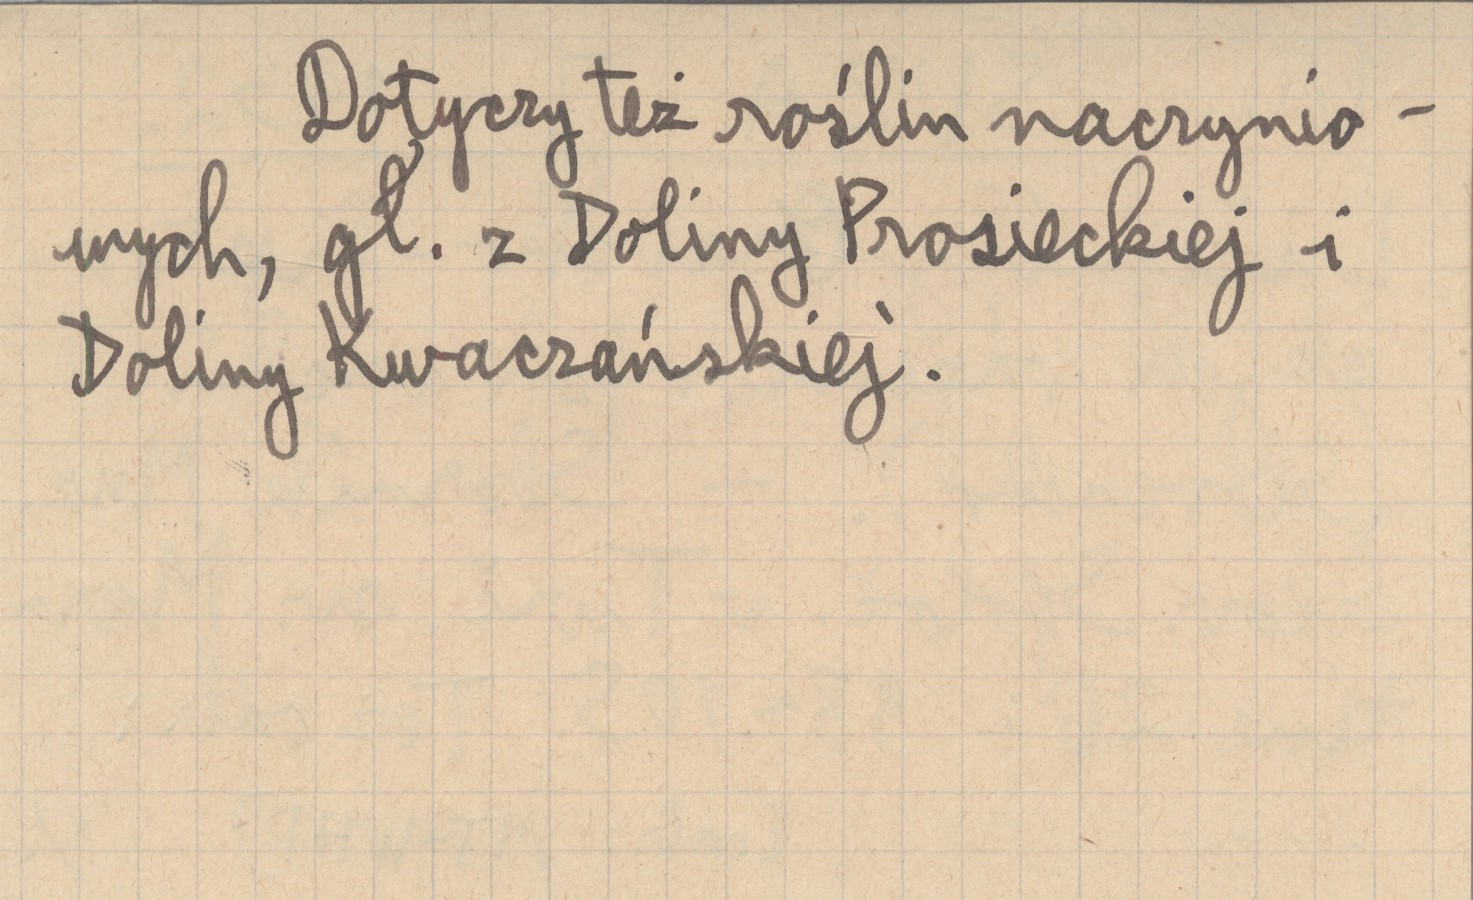 Dotyczy też roślin naczynio-
wych, gł. z Doliny Prosieckiej i
Doliny Kwaczańskiej.